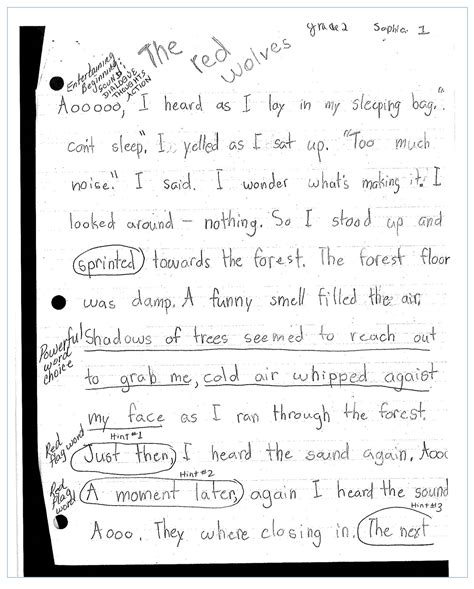 grade 2 Sophia 1
The red wolves
Entertaining
Beginning:
SOUND
DIALOGUE
THOUGHTS
ACTION
Aooooo, I heard as I lay in my sleeping bag. "I
can't sleep," I yelled as I sat up. "Too much
noise." I said. I wonder what's making it. I
looked around – nothing. So I stood up and
sprinted towards the forest. The forest floor
was damp. A funny smell filled the air.
Powerful
word
choice
Shadows of trees seemed to reach out
to grab me, cold air whipped agaist
my face as I ran through the forest.
Red
flag word
Hint #1
Just then, I heard the sound again. Aooo
Red
flag
word
Hint #2
A moment later, again I heard the sound
Hint #3
Aooo. They where closing in. The next